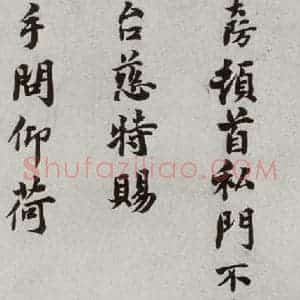 大防頓首私門不
台慈特賜
手問仰荷
Shufaziliao.COM